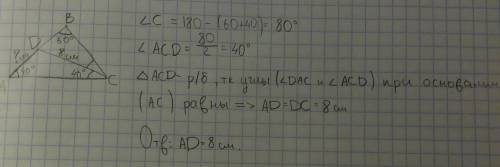 B
60°
D
8см
8 см
40°
40°
C
∠C = 180-(60+40)= 80°
∠ACD = 80/2 = 40°
△ACD- р/б, тк углы (∠DAC и ∠ACD) при основании
(AC) равны => AD=DC=8см
Отв: AD=8 см.